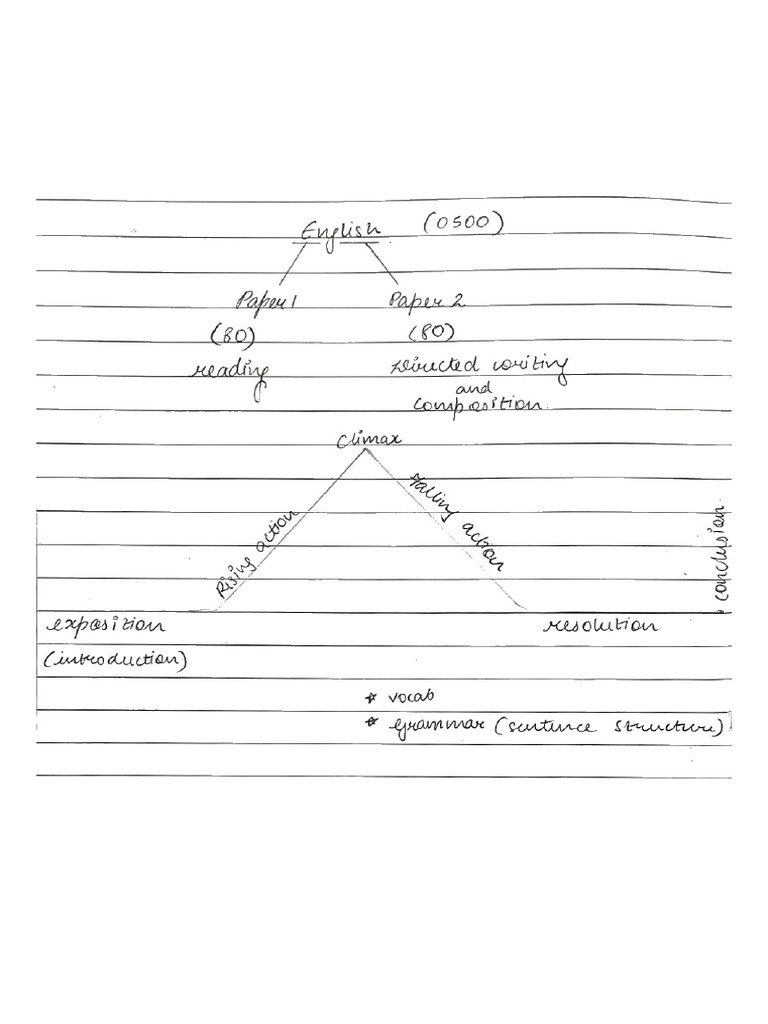 English (0500)
Paper 1 Paper 2
(80) (80)
reading Directed writing
and
composition.
Climax
Rising action
Falling action
conclusion.
exposition resolution
(introduction)
* vocab
* Grammar (sentence structure)